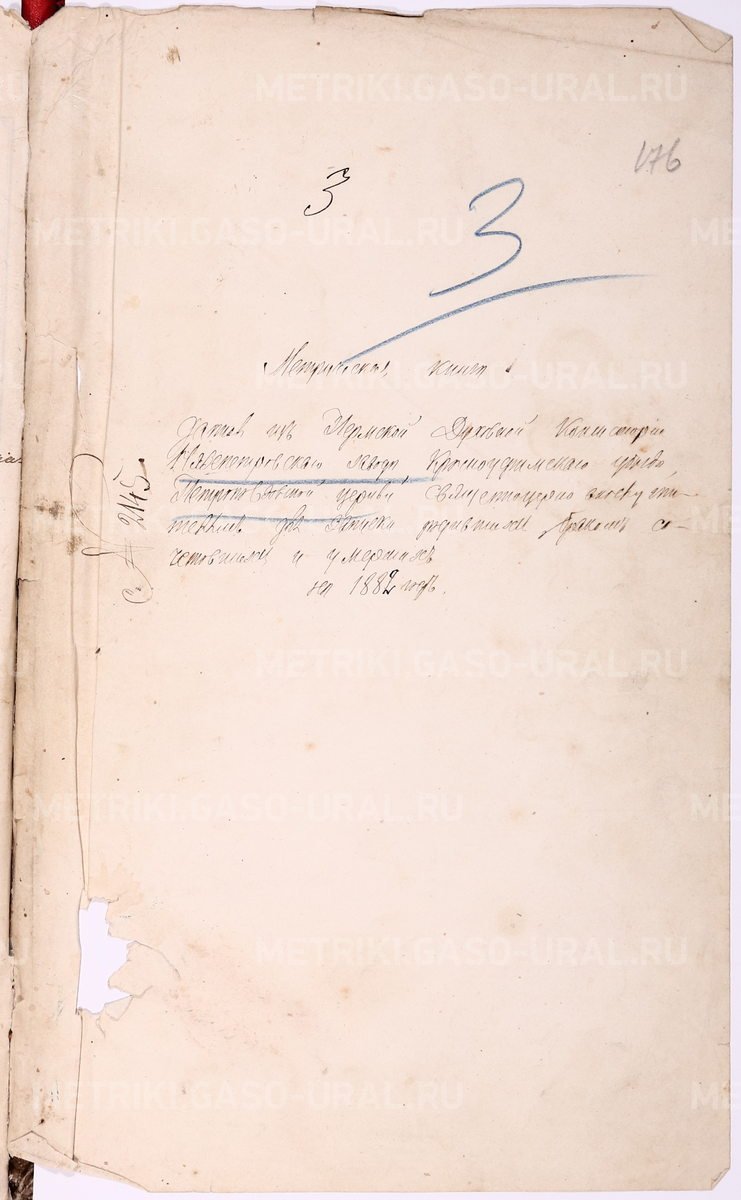 176
3
3
Метрическая книга
данная изъ Пермской Духовной Консисторіи
Нязепетровскаго завода Красноуфимскаго уѣзда,
Петропавловской церкви священноцерковнослужи-
телямъ для записки родившихся, бракомъ со-
четавшихся и умершихъ
на 1882 годъ.
№ 2145.
METRIKI.GASO-URAL.RU